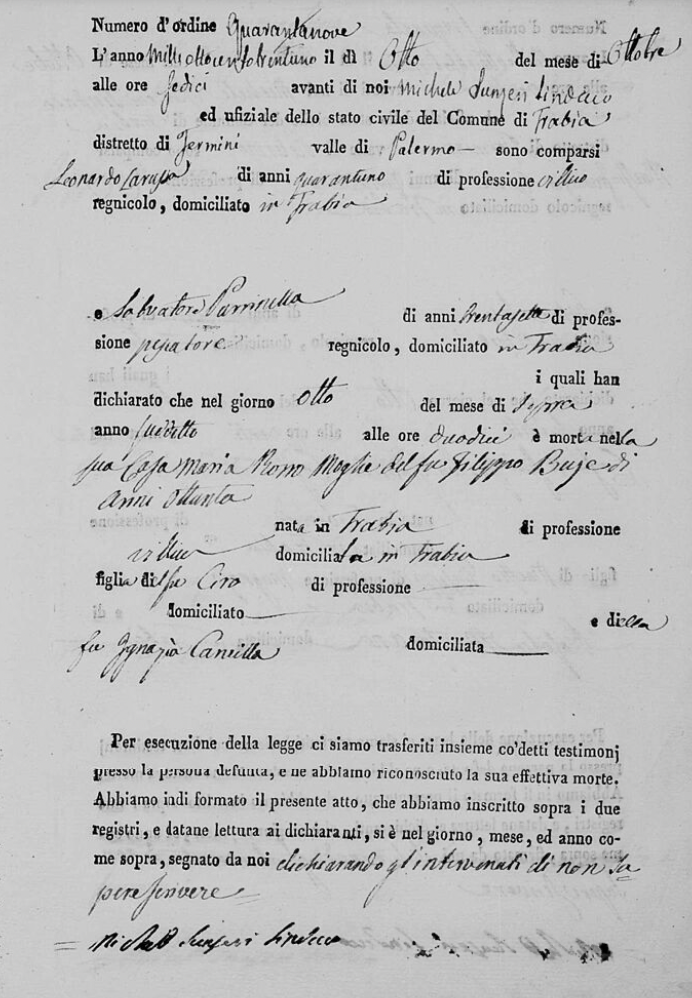 Numero d'ordine Quarantanove
L'anno Milleottocentotrentuno il dì Otto del mese di Ottobre
alle ore Sedici avanti di noi Michele Sunseri Sindaco
ed ufiziale dello stato civile del Comune di Trabia
distretto di Termini valle di Palermo — sono comparsi
Leonardo di anni quarantuno di professione villico
regnicolo, domiciliato in Trabia
e Salvatore Parrinella di anni trentasette di profes-
sione pescatore regnicolo, domiciliato in Trabia
i quali han
dichiarato che nel giorno Otto del mese di
anno suddetto alle ore duodici è morta nella
sua Casa Maria Rosso Moglie del fu Filippo di
anni Ottanta
nata in Trabia di professione
villica domiciliata in Trabia
figlia del fu Ciro di professione —
domiciliato — e della
fu Ignazia Cancilla domiciliata —
Per esecuzione della legge ci siamo trasferiti insieme co'detti testimonj
presso la persona defunta, e ne abbiamo riconosciuto la sua effettiva morte.
Abbiamo indi formato il presente atto, che abbiamo inscritto sopra i due
registri, e datane lettura ai dichiaranti, si è nel giorno, mese, ed anno co-
me sopra, segnato da noi dichiarando gl'intervenuti di non sa-
pere scrivere
Michele Sunseri Sindaco